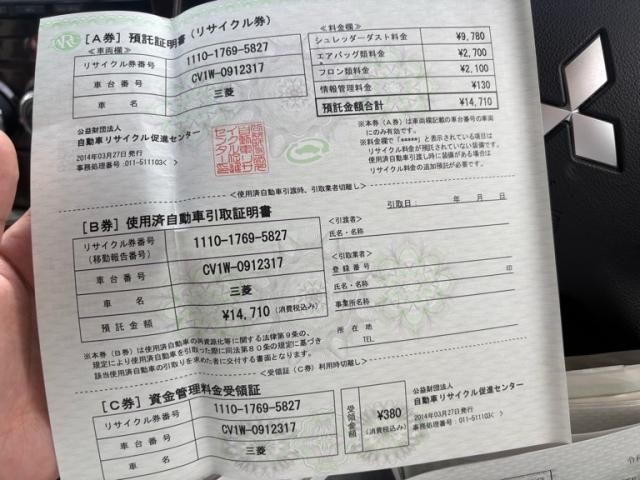 [A券] 預託証明書(リサイクル券)
<車両欄>
リサイクル券番号 1110-1769-5827
車台番号 CV1W-0912317
車名 三菱
<料金欄>
シュレッダーダスト料金 ¥9,780
エアバッグ類料金 ¥2,700
フロン類料金 ¥2,100
情報管理料金 ¥130
預託金額合計 ¥14,710
公益財団法人
自動車リサイクル促進センター
2014年03月27日発行
事務処理番号:011-511103< >
※本券(A券)は車両欄記載の車台番号の車両
にのみ有効です。
※料金欄で「*****」と表示されている項目は
リサイクル料金が預託されていない装備です。
使用済自動車引渡し時に装備がある場合は
リサイクル料金の追加預託が必要です。
<使用済自動車引渡時、引取業者切離し>
[B券] 使用済自動車引取証明書
リサイクル券番号
(移動報告番号) 1110-1769-5827
車台番号 CV1W-0912317
車名 三菱
預託金額 ¥14,710 (消費税込み)
引取日: 年 月 日
<引渡者>
氏名・名称
<引取業者>
登録番号
氏名・名称 印
事業所名称
所在地
TEL
※本券(B券)は使用済自動車の再資源化等に関する法律第9条の
規定により使用済自動車を引取った際に同法第80条の規定に基づき
該当使用済自動車の引取りを求めた者に交付する書面となります。
<受領証(C券)利用時切離し>
[C券] 資金管理料金受領証
リサイクル券番号 1110-1769-5827
車台番号 CV1W-0912317
車名 三菱
受領金額 ¥380 (消費税込み)
公益財団法人
自動車リサイクル促進センター
2014年03月27日発行
事務処理番号:011-511103< >